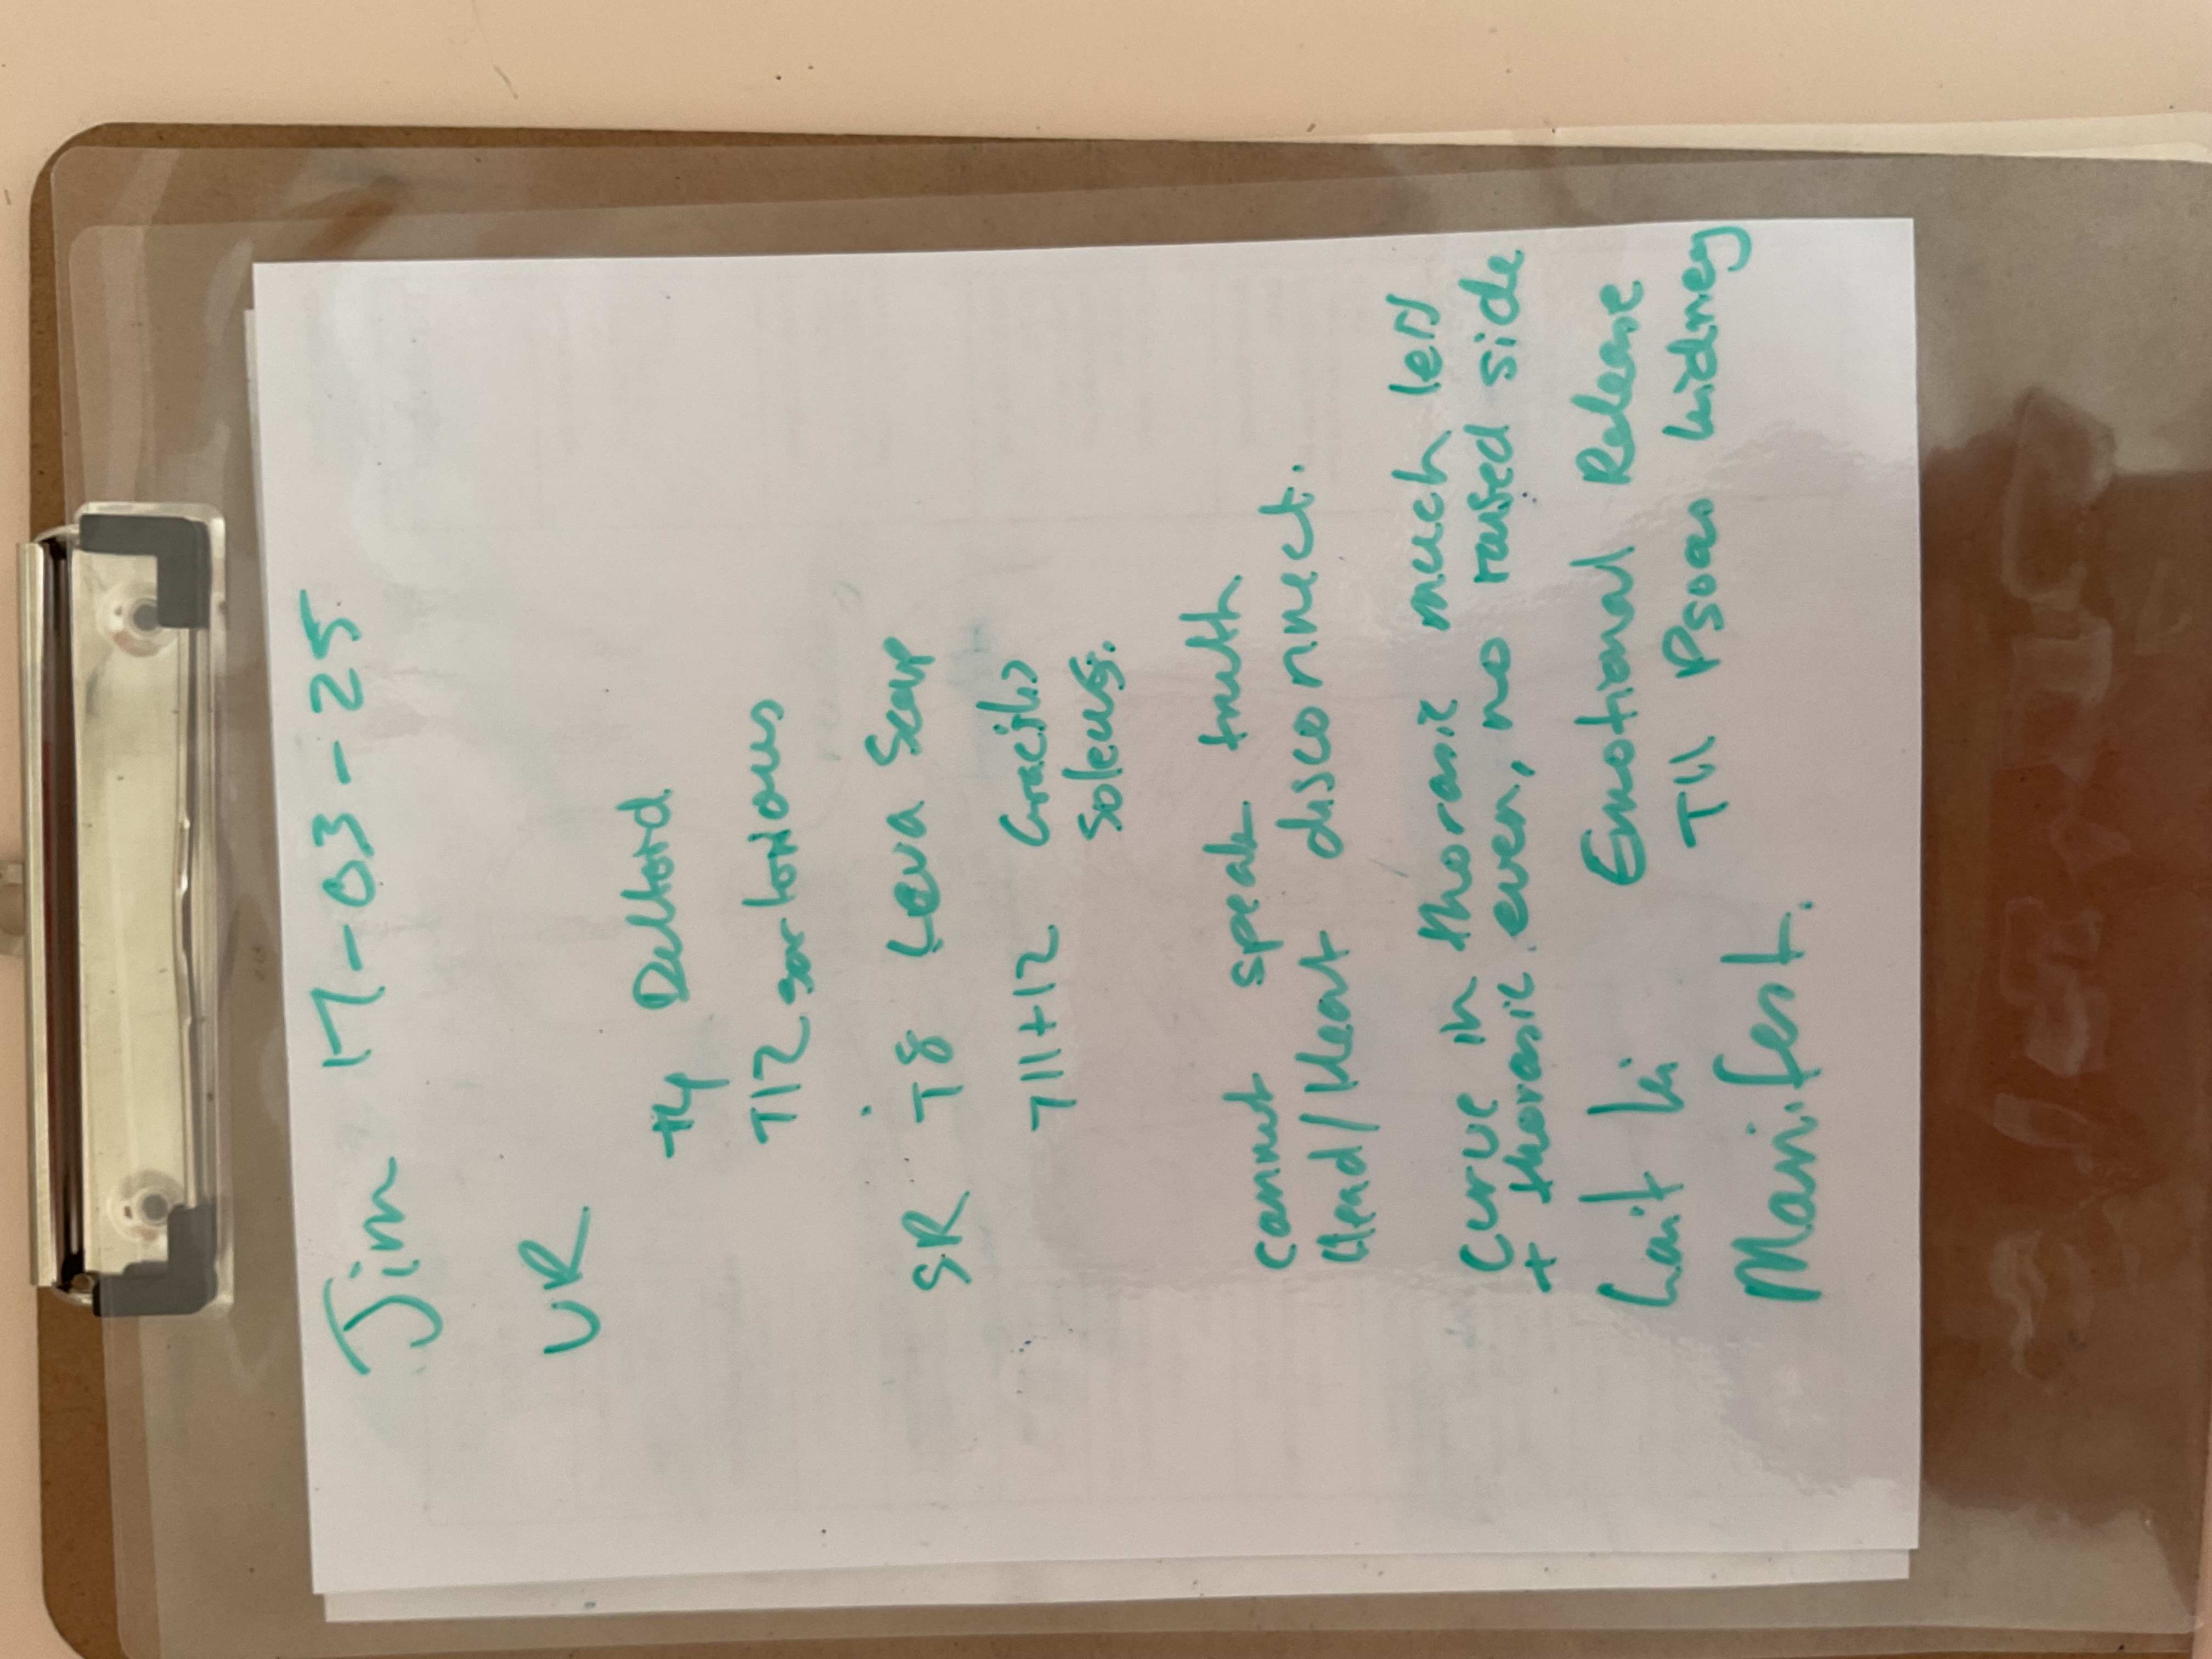 Jim 17-03-25
UR
T4 Deltoid
T12 sartorious
SR T8 Leva Scap
T11+12 Gracilis
Soleus.
cannot speak truth
Head/Heart disconnect.
Curve in thorasic much less
+ thorasic even, no raised side
Emotional Release
T11 Psoas kidney
Manifest.